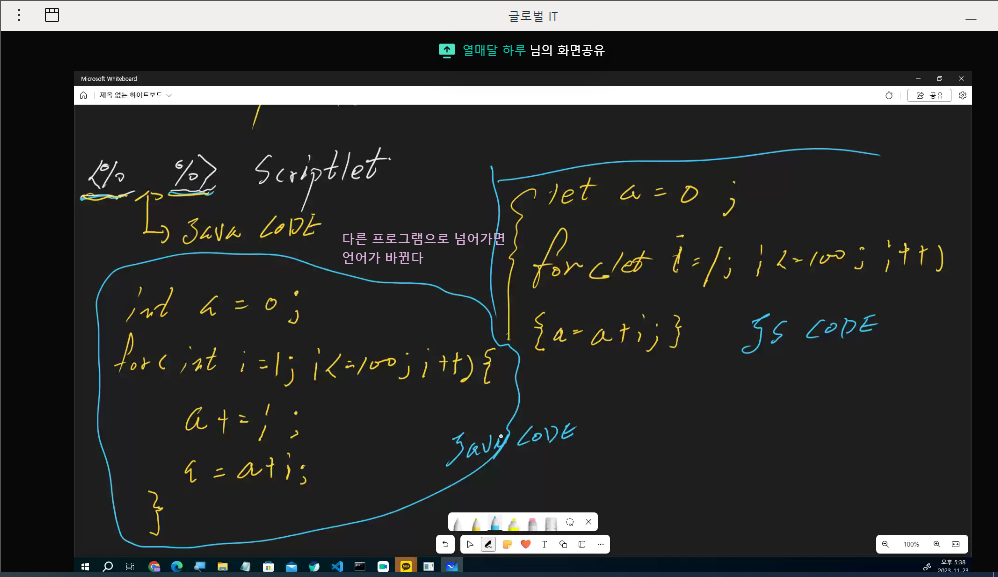 글로벌 IT
열매달 하루 님의 화면공유
Microsoft Whiteboard
제목 없는 화이트보드
공유
<% %> Scriptlet
Java CODE
다른 프로그램으로 넘어가면
언어가 바뀐다
int a = 0 ;
for( int i=1; i<=100; i++) {
a += i ;
a = a+i;
}
Java CODE
let a = 0 ;
for(let i=1; i<=100; i++)
{a=a+i;}
JS CODE
100%
오후 5:38
2023-11-23